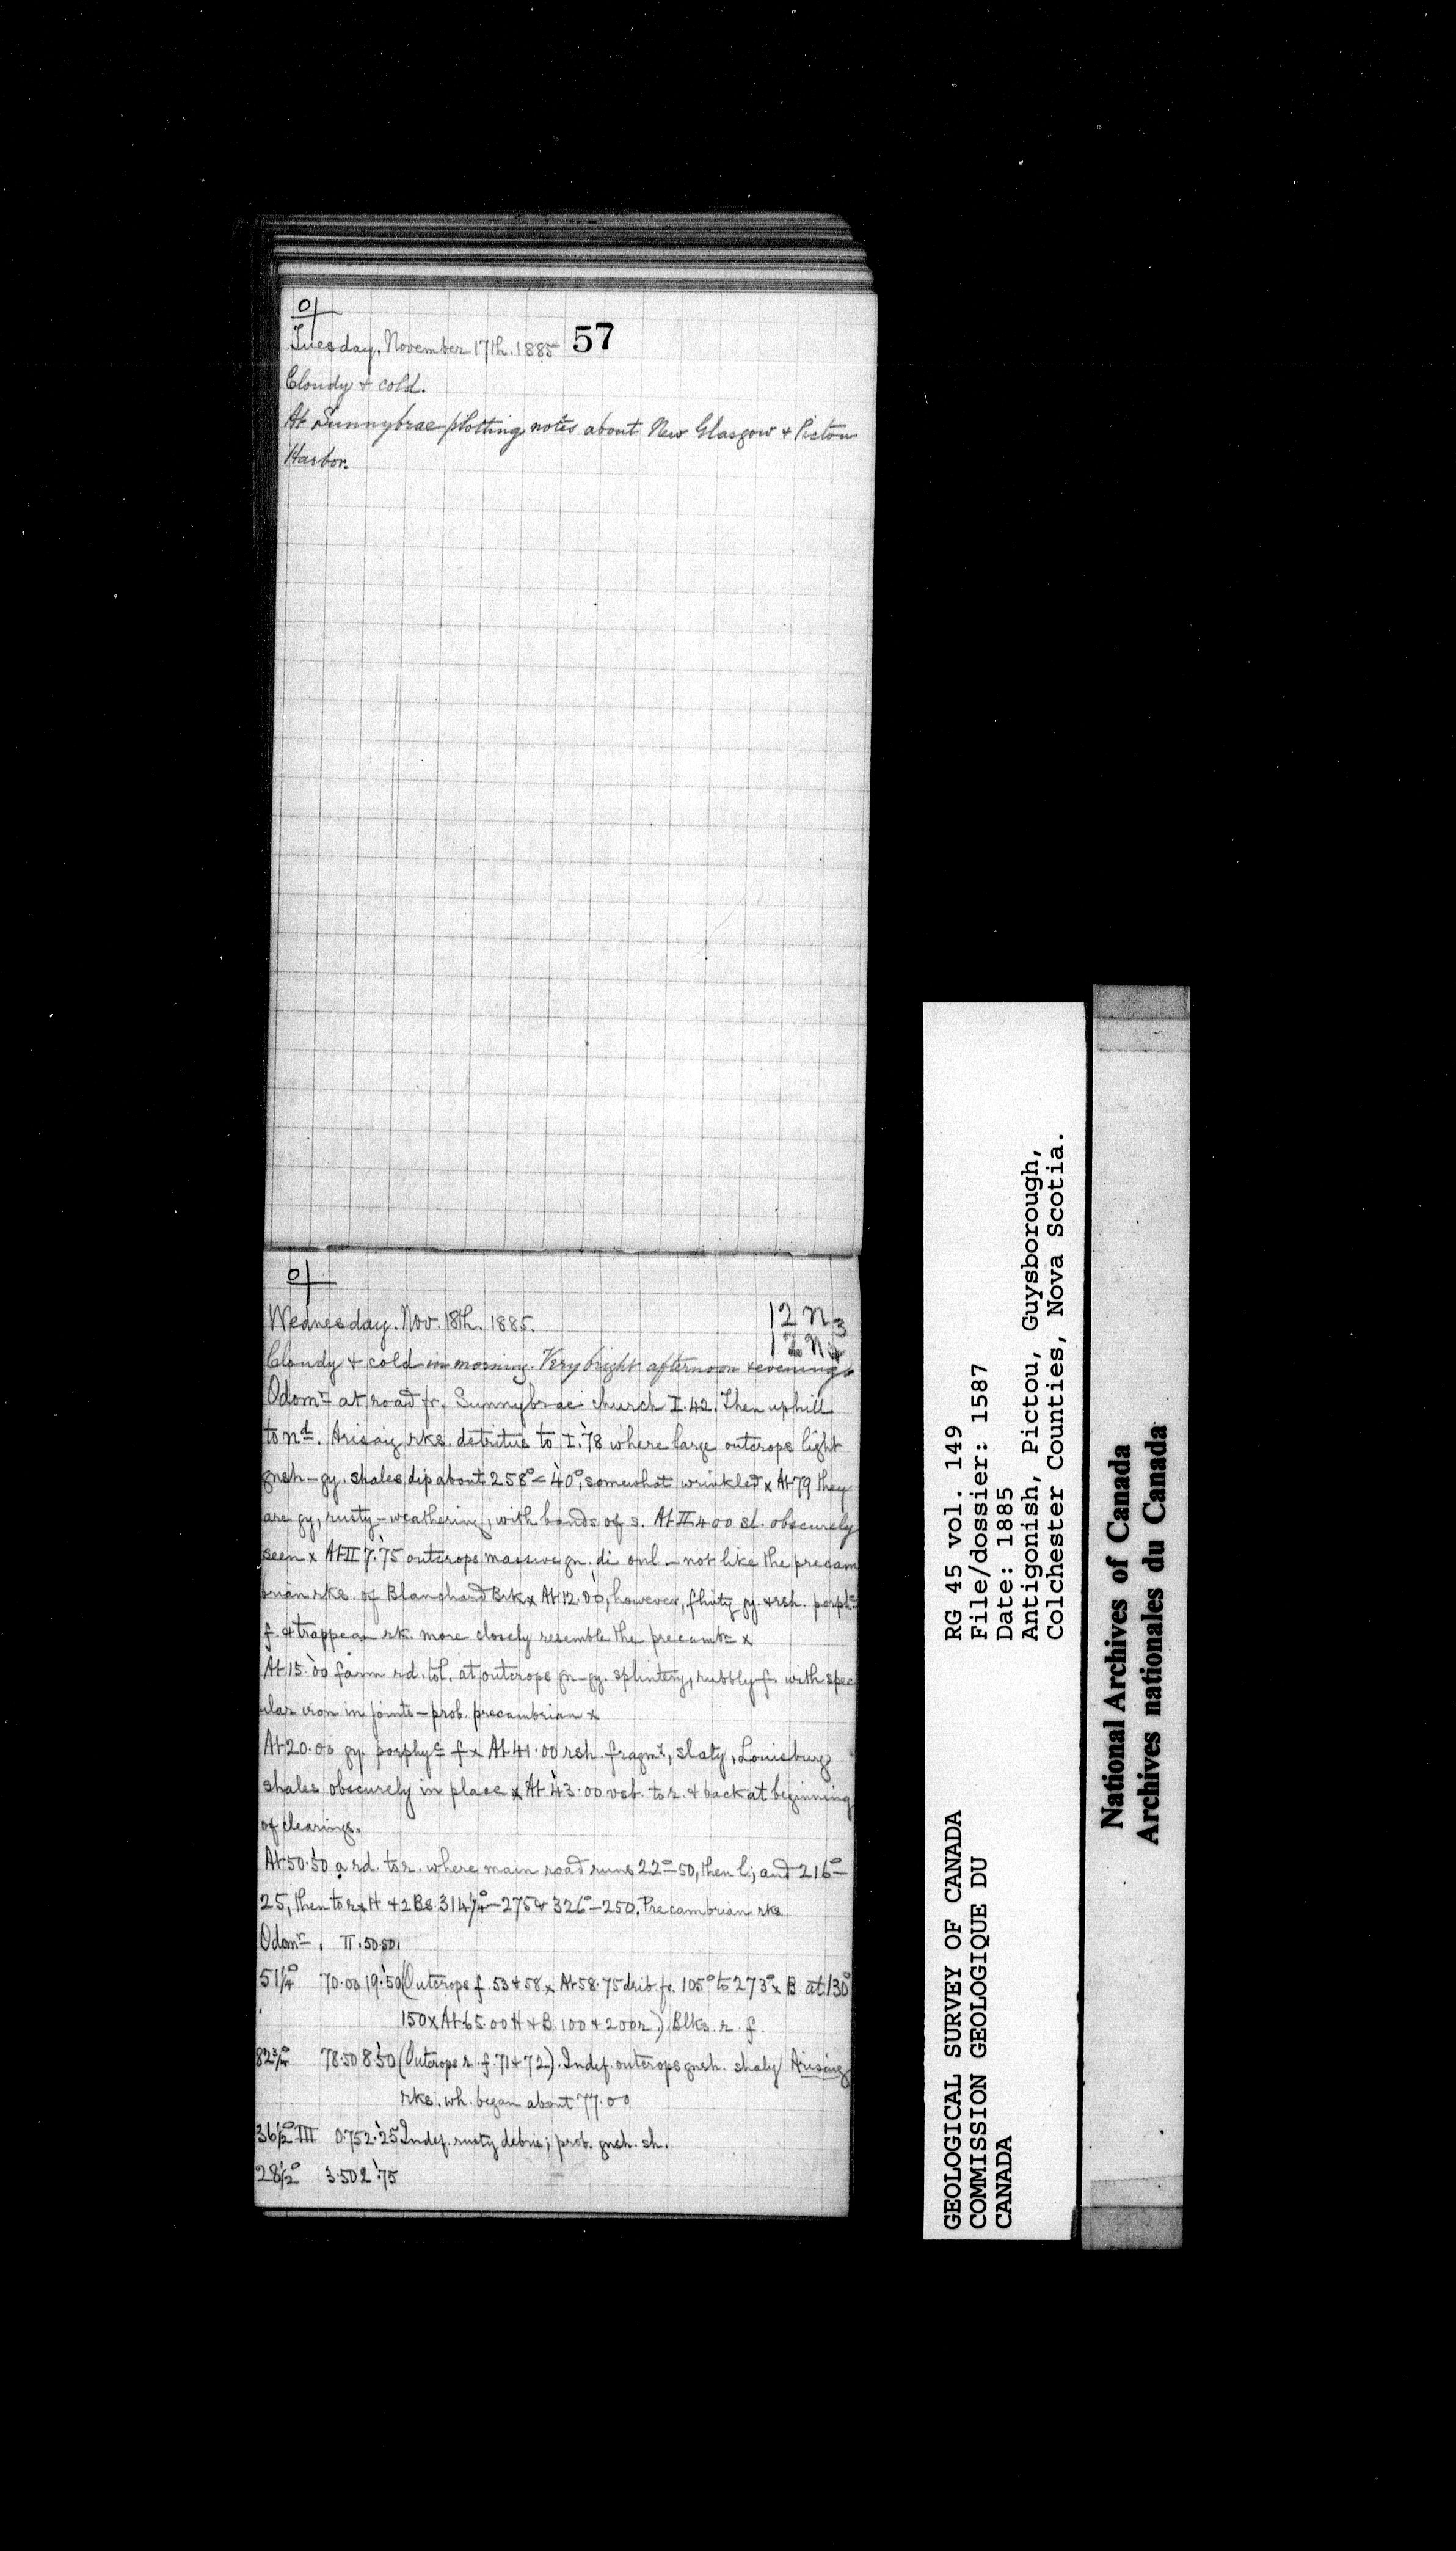 57
Tuesday, November 17th. 1885
Cloudy & cold.
At Sunnybrae plotting notes about New Glasgow & Pictou
Harbor.
12 n 3
12 n 4
Wednesday. Nov. 18th. 1885.
Cloudy & cold in morning. Very bright afternoon & evening.
Odomr at road fr. Sunnybrae church I.42. Then uphill
to nd. Arisaig rks. detritus to I.78 where large outcrops light
gnsh-gy. shales, dip about 258°<40°, somewhat wrinkled x At 79 they
are gy, rusty-weathering, with bands of s. At II 4.00 sl. obscurely
seen x At II 7.75 outcrops massive gn. di - not like the precam
brian rks. of Blanchard Brk x At 12.00, however, flinty gy. & rsh. porphc
f. & trappean rk. more closely resemble the precambn x
At 15.00 farm rd. to l. at outcrops gn-gy. splintery, rubbly f. with spec
ular iron in joints - prob. precambrian x
At 20.00 gy. porphyc f x At 41.00 rsh. fragmt, slaty, Louisburg
shales obscurely in place x At 43.00 to r. & back at beginning
of clearing.
At 50.50 a rd. to r. where main road runs 22°-50, then l; and 216°-
25, then to r x H & 2 Bs. 314¼°-275 & 326°-250. Precambrian rks.
Odomr. II.50.50.
51¼° 70.00 19.50 (Outcrops f. 53 & 58 x At 58.75 fr. 105° to 273° x B at 130°
150 x At 65.00 H & B 100 & 200 r.) Blks. r. f.
82¾° 78.50 8.50 (Outcrops r. f. 71 & 72). Indef. outcrops gnsh. shaly Arisaig
rks. wh. began about 77.00
36½° III 0.75 2.25 Indef. rusty debris; prob. gnsh. sh.
28½° 3.50 2.75
GEOLOGICAL SURVEY OF CANADA
COMMISSION GEOLOGIQUE DU
CANADA
RG 45 vol. 149
File/dossier: 1587
Date: 1885
Antigonish, Pictou, Guysborough,
Colchester Counties, Nova Scotia.
National Archives of Canada
Archives nationales du Canada